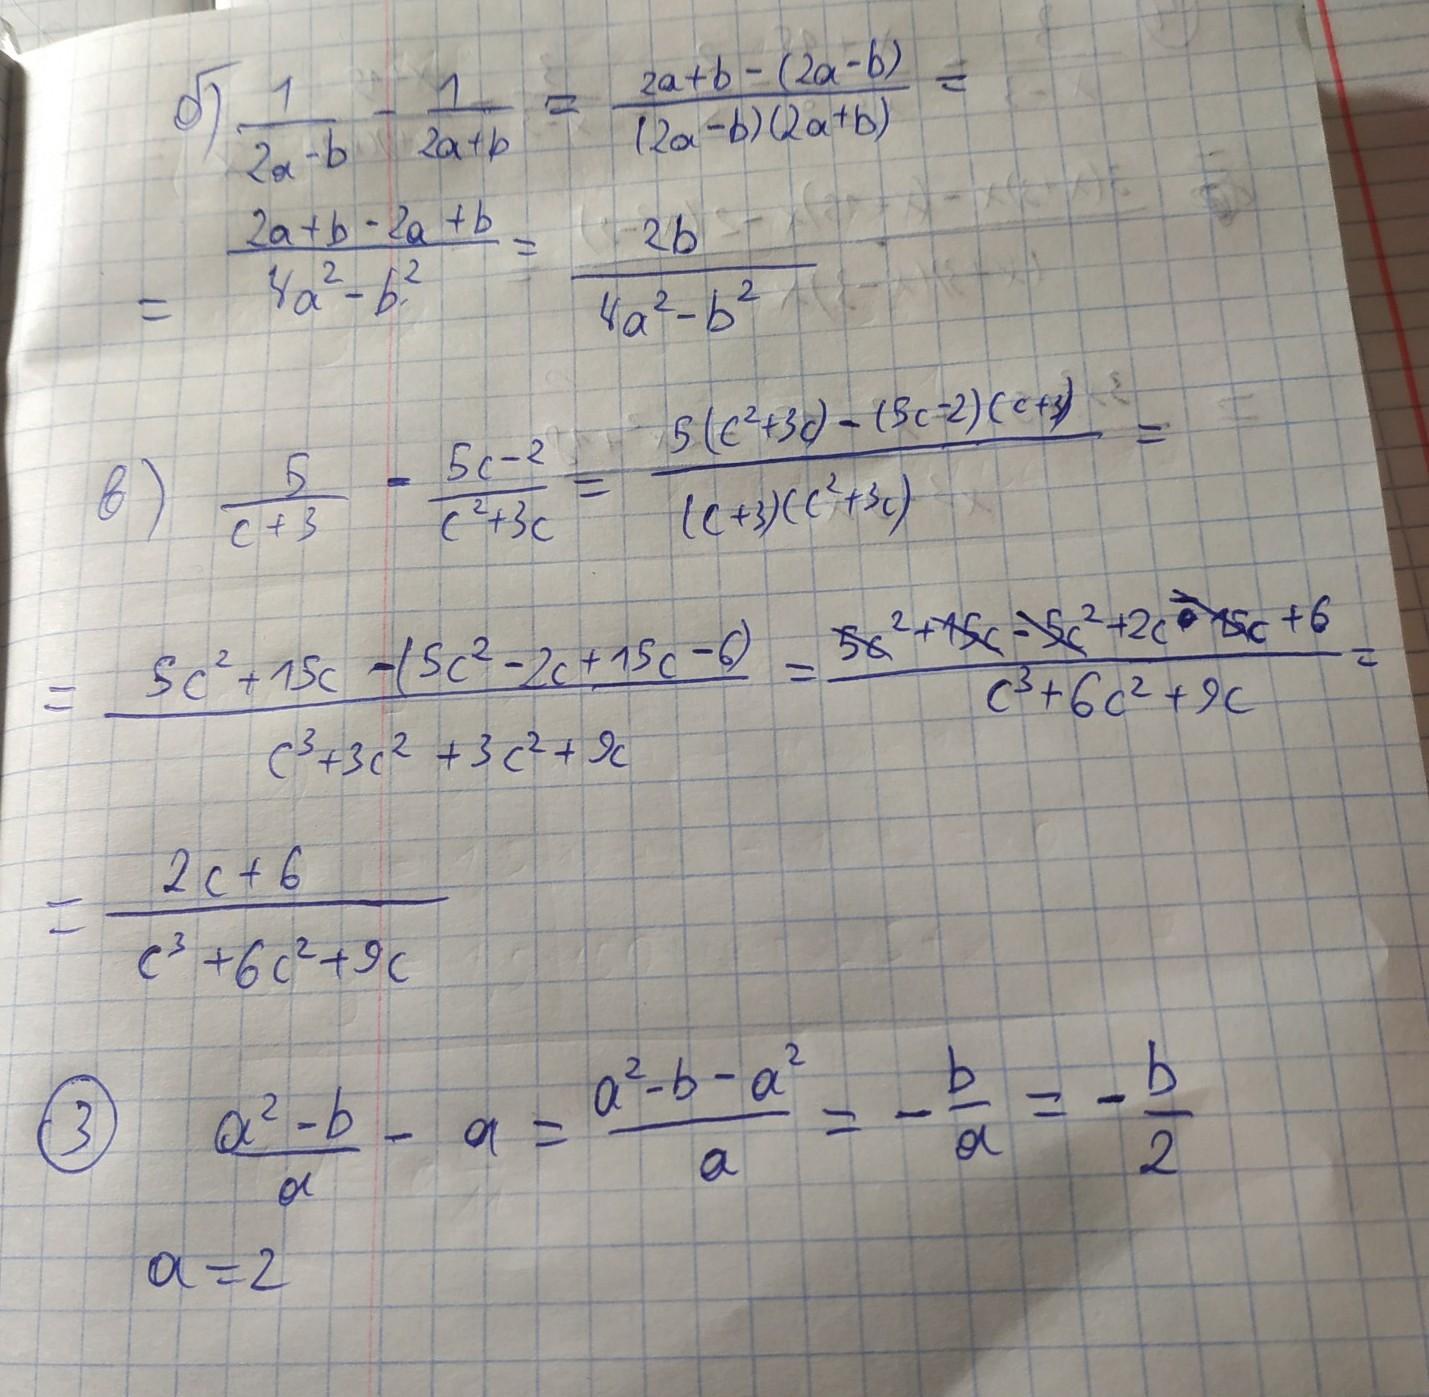 б) 1/(2a-b) - 1/(2a+b) = (2a+b-(2a-b))/((2a-b)(2a+b)) =
= (2a+b-2a+b)/(4a²-b²) = 2b/(4a²-b²)
в) 5/(c+3) - (5c-2)/(c²+3c) = (5(c²+3c)-(5c-2)(c+3))/((c+3)(c²+3c)) =
= (5c²+15c-(5c²-2c+15c-6))/(c³+3c²+3c²+9c) = (5c²+15c-5c²+2c-15c+6)/(c³+6c²+9c) =
= (2c+6)/(c³+6c²+9c)
3 (a²-b)/a - a = (a²-b-a²)/a = -b/a = -b/2
a=2